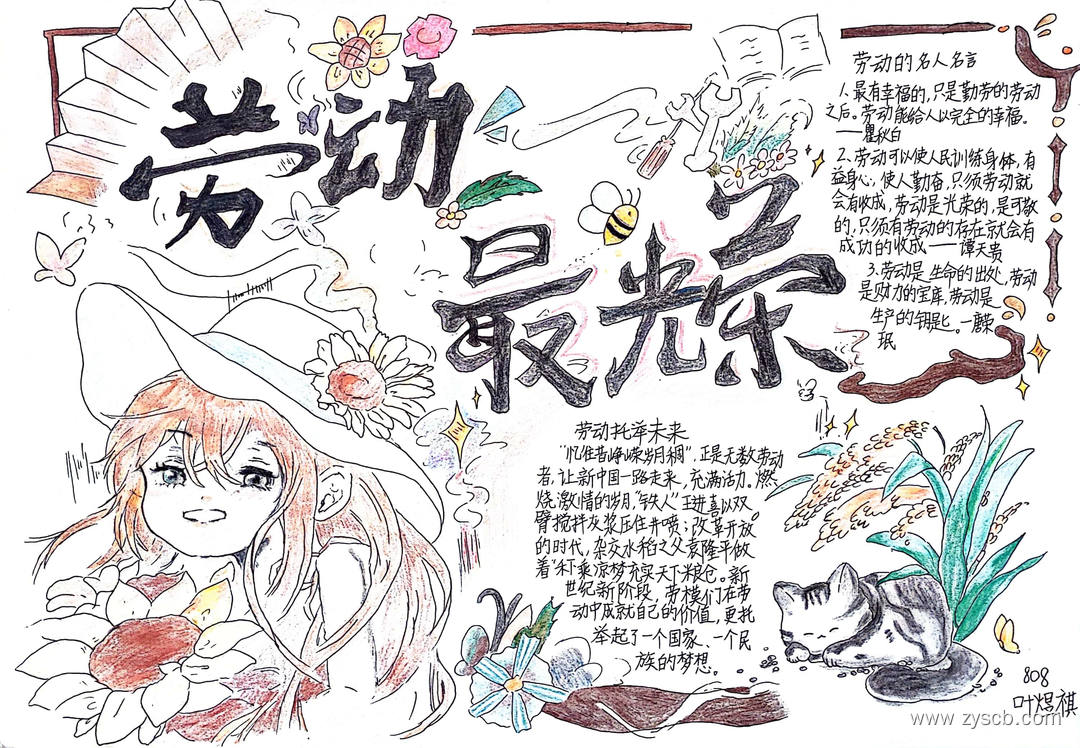 劳动
最光荣
劳动的名人名言
1、最有幸福的,只是勤劳的劳动
之后。劳动能给人以完全的幸福。
——瞿秋白
2、劳动可以使人民训练身体,有
益身心,使人勤奋,只须劳动就
会有收成,劳动是光荣的,是可敬
的,只须有劳动的存在就会有
成功的收成——谭天贵
3、劳动是生命的出处,劳动
是财力的宝库,劳动是
生产的钥匙。—荣
珉
劳动托举未来
“忆往昔峥嵘岁月稠”,正是无数劳动
者,让新中国一路走来,充满活力。燃
烧激情的岁月,“铁人”王进喜以双
臂搅拌灰浆压住井喷;改革开放
的时代,杂交水稻之父袁隆平做
着“禾下乘凉梦”充实天下粮仓。新
世纪新阶段,劳模们在劳
动中成就自己的价值,更托
举起了一个国家、一个民
族的梦想。
808
叶煜祺
www.zyscb.com